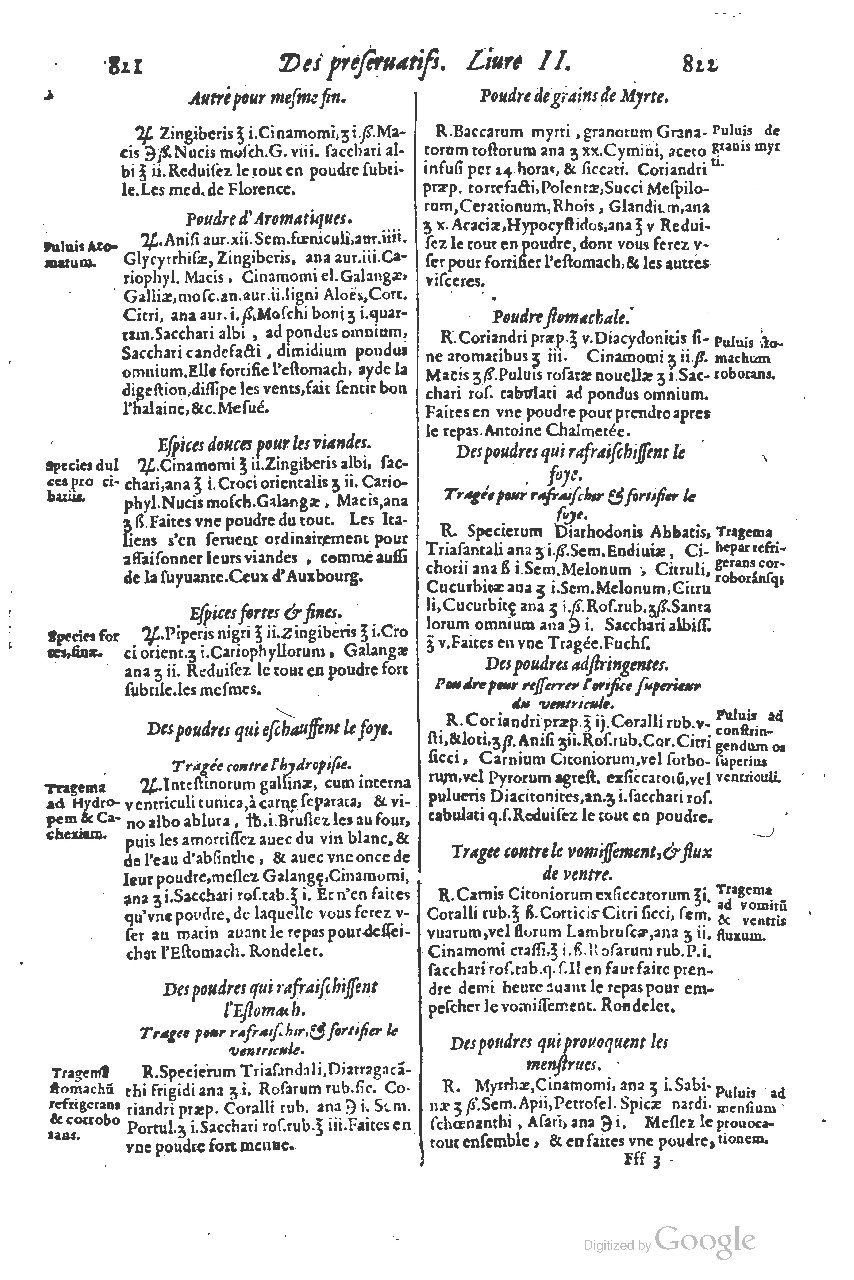 811 Des preseruatifs. Liure II. 812
Autre pour mesme fin.
♃. Zingiberis ℥ i. Cinamomi, ʒ i.ß. Ma-
cis ℈ß. Nucis mosch. G. viii. sacchari al-
bi ℥ ii. Reduisez le tout en poudre subti-
le. Les med. de Florence.
Poudre d'Aromatiques.
Puluis Aro-
matum.
♃. Anisi aur. xii. Sem. fœniculi, aur. iiii.
Glycyrrhisæ, Zingiberis, ana aur. iii. Ca-
riophyl. Macis, Cinamomi el. Galangæ,
Galliæ, mosc. an. aur. ii. ligni Aloës, Cort.
Citri, ana aur. i.ß. Moschi boni ʒ i. quar-
tam. Sacchari albi, ad pondus omnium,
Sacchari candefacti, dimidium pondus
omnium. Elle fortifie l'estomach, ayde la
digestion, dissipe les vents, fait sentir bon
l'halaine, &c. Mesué.
Espices douces pour les viandes.
Species dul
ces pro ci-
bariis.
♃. Cinamomi ℥ ii. Zingiberis albi, sac-
chari, ana ℥ i. Croci orientalis ʒ ii. Cario-
phyl. Nucis mosch. Galangæ, Macis, ana
ʒ ß. Faites vne poudre du tout. Les Ita-
liens s'en seruent ordinairement pour
assaisonner leurs viandes, comme aussi
de la suyuante. Ceux d'Auxbourg.
Espices fortes & fines.
Species for
tes, finæ.
♃. Piperis nigri ℥ ii. Zingiberis ℥ i. Cro
ci orient. ʒ i. Cariophyllorum, Galangæ
ana ʒ ii. Reduisez le tout en poudre fort
subtile. les mesmes.
Des poudres qui eschauffent le foye.
Tragée contre l'hydropisie.
Tragema
ad Hydro-
pem & Ca-
chexiam.
♃. Intestinorum gallinæ, cum interna
ventriculi tunica, à carne separata, & vi-
no albo abluta, ℔. i. Bruslez les au four,
puis les amortissez auec du vin blanc, &
de l'eau d'absinthe, & auec vne once de
leur poudre, meslez Galangę, Cinamomi,
ana ʒ i. Sacchari ros. tab. ℥ i. Et n'en faites
qu'vne poudre, de laquelle vous ferez v-
ser au matin auant le repas pour dessei-
cher l'Estomach. Rondelet.
Des poudres qui rafraischissent
l'Estomach.
Tragee pour rafraischir, & fortifier le
ventricule.
Tragema
stomachū
refrigerans
& corrobo
rans.
R. Specierum Triasandali, Diatragacā-
thi frigidi ana ʒ i. Rosarum rub. sic. Co-
riandri præp. Coralli rub. ana ℈ i. Sem.
Portul. ʒ i. Sacchari ros. rub. ℥ iii. Faites en
vne poudre fort menue.
Poudre de grains de Myrte.
R. Baccarum myrti, granorum Grana-
torum tostorum ana ʒ xx. Cymini, aceto
infusi per 24 horas, & siccati. Coriandri
præp. torrefacti, Polentæ, Succi Mespilo-
rum, Cerationum, Rhois, Glandium, ana
ʒ x. Acaciæ, Hypocystidos, ana ℥ v Redui-
sez le tout en poudre, dont vous ferez v-
ser pour fortifier l'estomach, & les autres
visceres.
Puluis de
granis myr
ti.
Poudre stomachale.
R. Coriandri præp. ℥ v. Diacydonitis si-
ne aromatibus ʒ iii. Cinamomi ʒ ii.ß.
Macis ʒ ß. Puluis rosatæ nouellæ ʒ i. Sac-
chari ros. tabulati ad pondus omnium.
Faites en vne poudre pour prendre apres
le repas. Antoine Chalmetée.
Puluis sto-
machum
roborans.
Des poudres qui rafraischissent le
foye.
Tragée pour rafraischir & fortifier le
foye.
R. Specierum Diarhodonis Abbatis,
Triasantali ana ʒ i.ß. Sem. Endiuiæ, Ci-
chorii ana ß i. Sem. Melonum, Citruli,
Cucurbitæ ana ʒ i. Sem. Melonum, Citru
li, Cucurbitę ana ʒ i.ß. Ros. rub. ʒß. Santa
lorum omnium ana ℈ i. Sacchari albiss.
℥ v. Faites en vne Tragée. Fuchs.
Tragema
hepar refri-
gerans cor-
roboránsq;
Des poudres adstringentes.
Poudre pour resserrer l'orifice superieur
du ventricule.
R. Coriandri præp. ℥ ij. Coralli rub. v-
sti, & loti, ʒß. Anisi ʒii. Ros. rub. Cor. Citri
sicci, Carnium Citoniorum, vel sorbo-
rum, vel Pyrorum agrest. exsiccatorū, vel
pulueris Diacitonites, an. ʒ i. sacchari ros.
tabulati q.s. Reduisez le tout en poudre.
Puluis ad
constrin-
gendum os
superius
ventriculi.
Tragee contre le vomissement, & flux
de ventre.
R. Carnis Citoniorum exsiccatorum ℥i.
Coralli rub. ℥ ß. Corticis Citri sicci, sem,
vuarum, vel florum Lambruscæ, ana ʒ ii.
Cinamomi crassi, ℥ i.ß. Rosarum rub. P. i.
sacchari ros. tab. q.s. Il en faut faire pren-
dre demi heure auant le repas pour em-
pescher le vomissement. Rondelet.
Tragema
ad vomitū
& ventris
fluxum.
Des poudres qui prouoquent les
menstrues.
R. Myrrhæ, Cinamomi, ana ʒ i. Sabi-
næ ʒ ß. Sem. Apii, Petrosel. Spicæ nardi.
schœnanthi, Asari, ana ℈ i. Meslez le
tout ensemble, & en faites vne poudre,
Puluis ad
mensium
prouoca-
tionem.
Fff 3
Digitized by Google